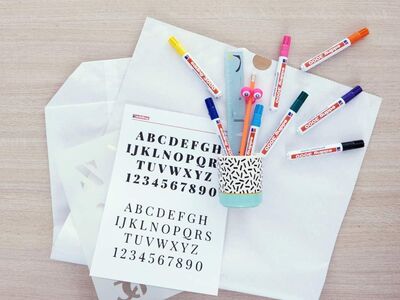 edding
ABCDEFGH
IJKLNOPQR
STUVWXYZ
1234567890
ABCDEFGH
IJKLNOPQRS
TUVWXYZ
1234567890